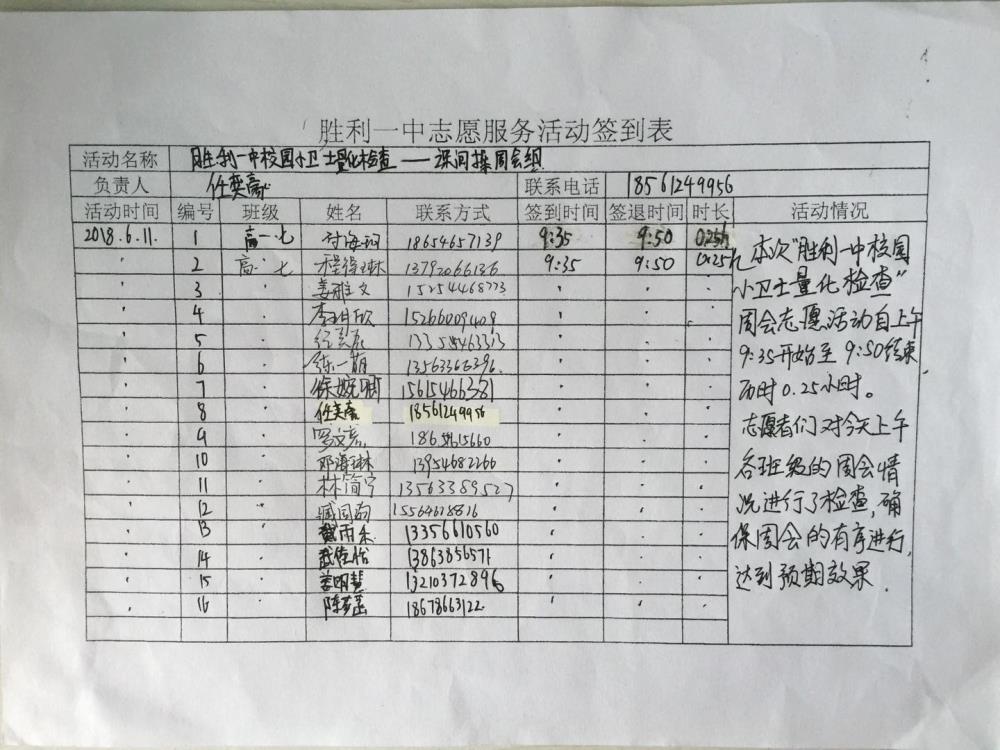 胜利一中志愿服务活动签到表
活动名称 胜利一中校园小卫士量化检查——课间操周会组
负责人 任奕豪 联系电话 18561249956
活动时间 编号 班级 姓名 联系方式 签到时间 签退时间 时长 活动情况
2018.6.11. 1 高一.七 18654657139 9:35 9:50 0.25h
2 高一.七 程锦琳 13792066136 9:35 9:50 0.25h
3 姜雅文 15254468773
4 李玥欣 15266009409
5
6 陈一萌 13563366396
7 徐婉卿 15615466381
8 任奕豪 18561249956
9
10 邓海琳 13954682266
11 林简宁 13563389527
12 臧国菊 15564618816
13 戴雨禾 13356610560
14 武佳怡 13863856571
15 姜明慧 13210372896
16 陈梦瑶 18678663122
本次“胜利一中校园
小卫士量化检查”
周会志愿活动自上午
9:35开始至9:50结束,
历时0.25小时。
志愿者们对今天上午
各班级的周会情
况进行了检查,确
保周会的有序进行,
达到预期效果.